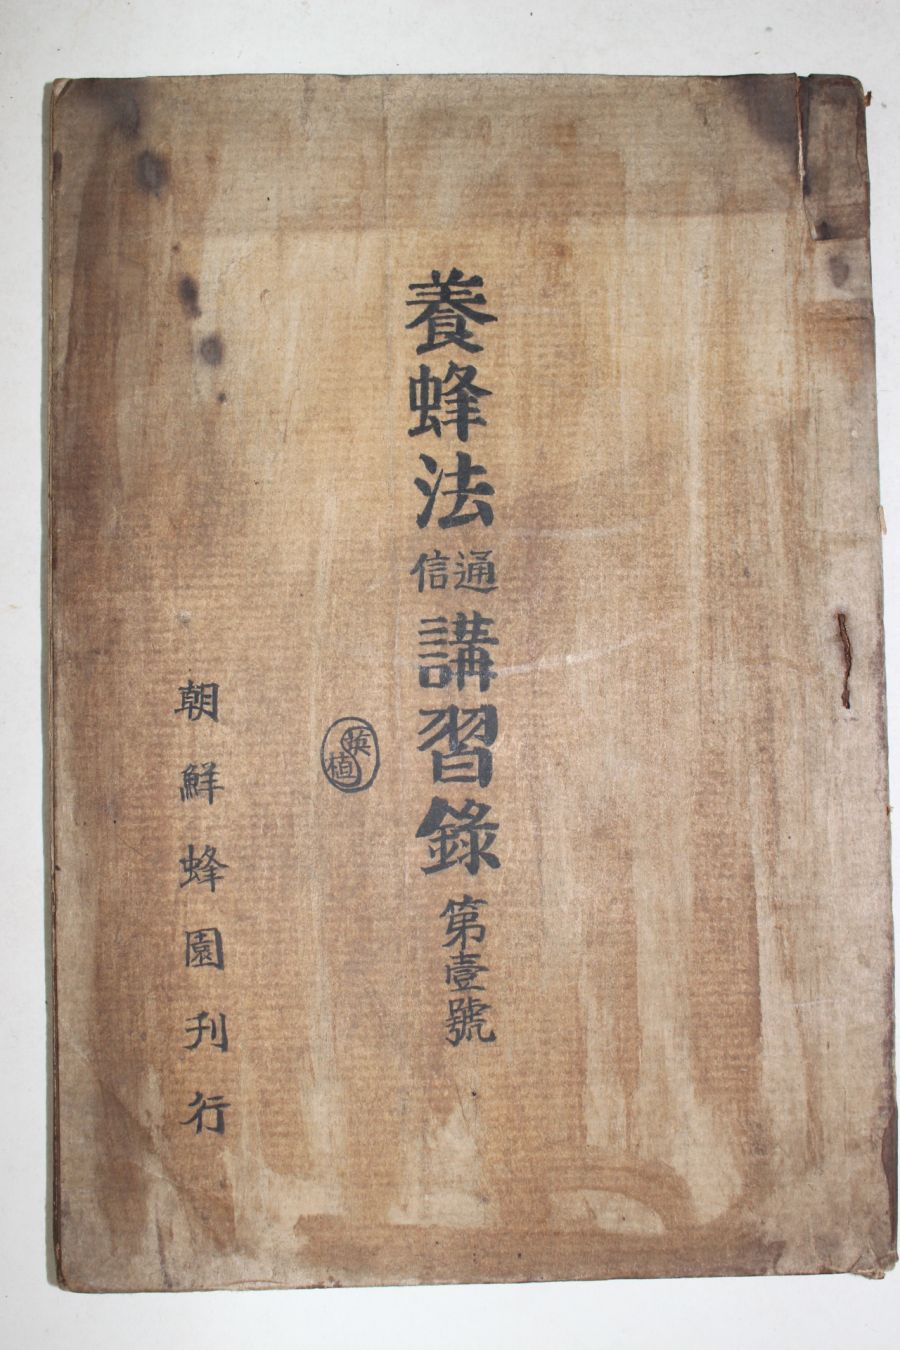 養蜂法通信講習錄第壹號
英植
朝鮮蜂園刊行